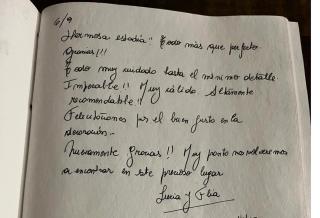 6/9
Hermosa estadía!! Todo más que perfecto
Gracias!!!
Todo muy cuidado hasta el mínimo detalle.
Impecable!! Muy cálido Altamente
recomendable!!
Felicitaciones por el buen gusto en la
decoración.-
Nuevamente Gracias!! Muy pronto nos volveremos
a encontrar en este precioso lugar
Lucia y Flia